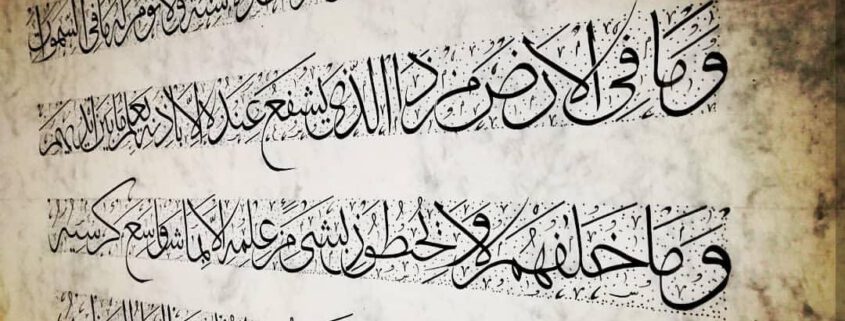 سنة ولا نوم له ما في السموات
وما في الارض من ذا الذي يشفع عنده الا باذنه يعلم ما بين ايديهم
وما خلفهم ولا يحيطون بشئ من علمه الا بما شا وسع كرسيه